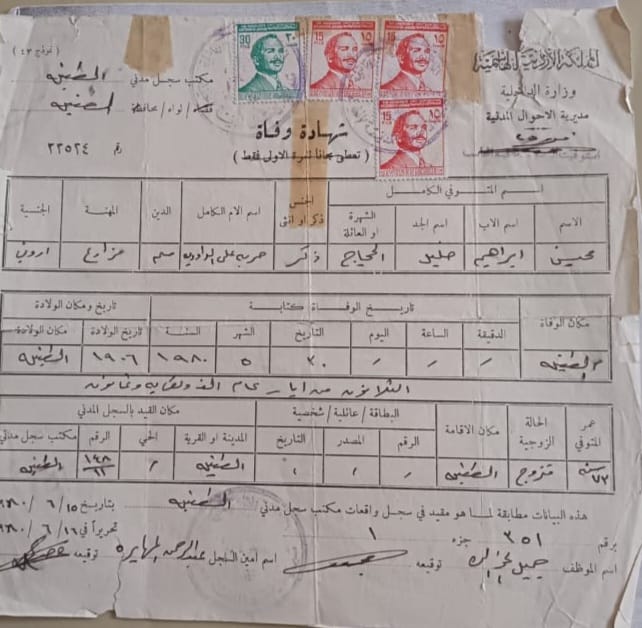 المملكة الأردنية الهاشمية
وزارة الداخلية
مديرية الاحوال المدنية
( نموذج ٤٢ )
مكتب سجل مدني الطفيله
قضاء / لواء / محافظة الطفيله
رقم ٢٢٥٢٤
٣٠ 30
١٥ 15
١٥ 15
١٥ 15
شهادة وفاة
( تعطى مجانا للمرة الاولى فقط )
اسم المتوفي الكامل
الاسم اسم الاب اسم الجد الشهرة او العائلة الجنس ذكر او انثى اسم الام الكامل الدين المهنة الجنسية
محيسن ابراهيم خليل الحجاج ذكر علي مسلم مزارع
مكان الوفاة تاريخ الوفاة كتابة تاريخ ومكان الولادة
الدقيقة الساعة اليوم التاريخ الشهر السنة تاريخ الولادة مكان الولادة
الطفيله / / / ٣٠ ٥ ١٩٨٠ ١٩٠٦ الطفيله
الثلاثون من ايار عام الف وتسعمايه وثمانون
عمر المتوفي الحالة الزوجية مكان الاقامة البطاقة / عائلية / شخصية مكان القيد بالسجل المدني
الرقم المصدر التاريخ المدينة او القرية الحي الرقم مكتب سجل مدني
متزوج الطفيله / / / الطفيله / الطفيله
هذه البيانات مطابقة لما هو مقيد في سجل واقعات مكتب سجل مدني الطفيله بتاريخ ١٥ / ٦ / ١٩٨٠
برقم ٣٥١ جزء ١ تحريرا في ١٦ / ٦ / ١٩٨٠
اسم الموظف جميل توقيعه اسم امين السجل عبدالرحمن المهايره توقيعه